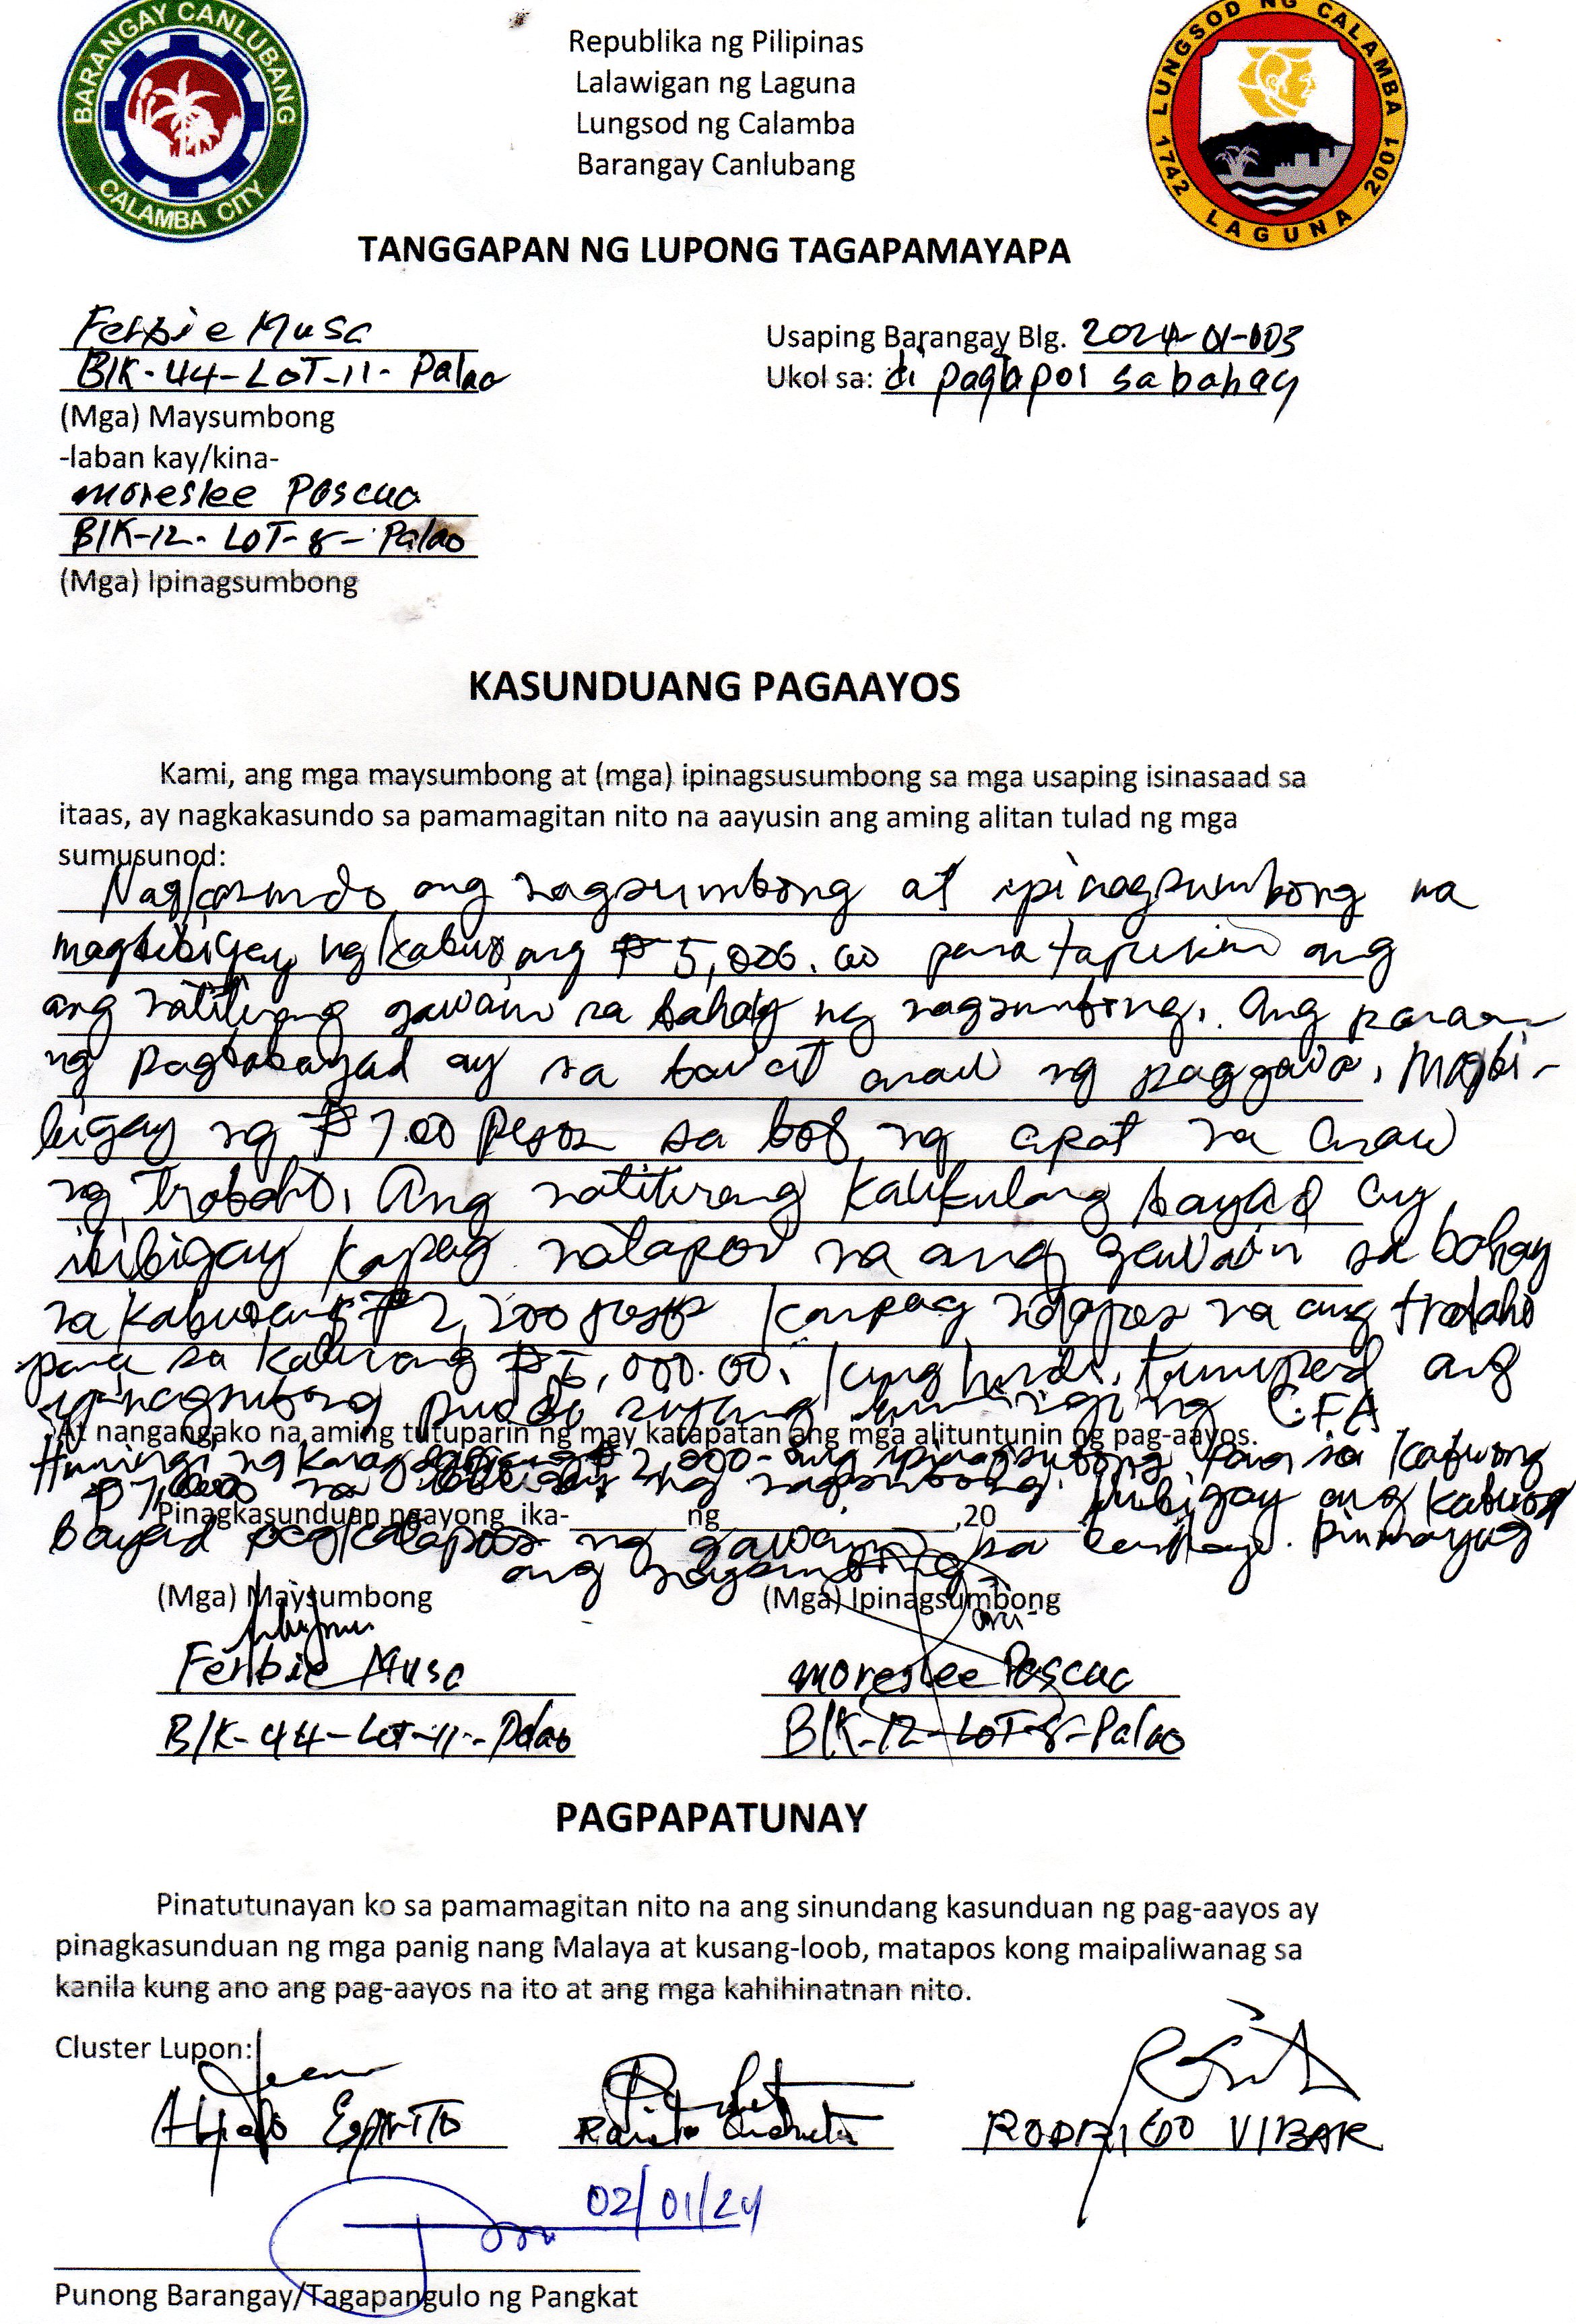 BARANGAY CANLUBANG
CALAMBA CITY
Republika ng Pilipinas
Lalawigan ng Laguna
Lungsod ng Calamba
Barangay Canlubang
LUNGSOD NG CALAMBA
1742 LAGUNA 2001
TANGGAPAN NG LUPONG TAGAPAMAYAPA
Ferbie Musa
Blk-44-LOT-11-Palao
(Mga) Maysumbong
-laban kay/kina-
moreslee Pascua
Blk-12-LOT-8-Palao
(Mga) Ipinagsumbong
Usaping Barangay Blg. 2024-01-003
Ukol sa: di pagtapos sa bahay
KASUNDUANG PAGAAYOS
Kami, ang mga maysumbong at (mga) ipinagsusumbong sa mga usaping isinasaad sa
itaas, ay nagkakasundo sa pamamagitan nito na aayusin ang aming alitan tulad ng mga
sumusunod:
Nagkasundo ang nagsumbong at ipinagsumbong na
magbibigay ng kabuoang ₱ 5,000.00 para tapusin ang
ang natitirang gawain sa bahay ng nagsumbong. Ang paraan
ng pagbabayad ay sa bawat araw ng paggawa, magbi-
bigay ng ₱ 700 pesos sa loob ng apat na araw
ng trabaho. Ang natitirang kakulang bayad ay
ibibigay kapag natapos na ang gawain sa bahay
sa kabuoang ₱ 2,200 kapag natapos na ang trabaho
para sa kabuoang ₱ 5,000.00. kung hindi tumupad ang
ipinagsumbong ng CFA
At nangangako na aming tutuparin ng may katapatan ang mga alituntunin ng pag-aayos.
Humingi ng karagdagang ₱ 2,000 ang ipinagsumbong para sa kabuong
₱ 7,000 na ng nagsumbong. Ibibigay ang kabuong
Pinagkasunduan ngayong ika-______ ng ____________,20____
bayad pagkatapos ng gawain sa bahay. Pumayag
ang naysumbong
(Mga) Maysumbong
(Mga) Ipinagsumbong
Ferbie Musa
moreslee Pascua
Blk-44-Lot-11-Palao
Blk-12-LOT-8-Palao
PAGPAPATUNAY
Pinatutunayan ko sa pamamagitan nito na ang sinundang kasunduan ng pag-aayos ay
pinagkasunduan ng mga panig nang Malaya at kusang-loob, matapos kong maipaliwanag sa
kanila kung ano ang pag-aayos na ito at ang mga kahihinatnan nito.
Cluster Lupon:
Espirito
RODRIGO VIBAR
02/01/24
Punong Barangay/Tagapangulo ng Pangkat